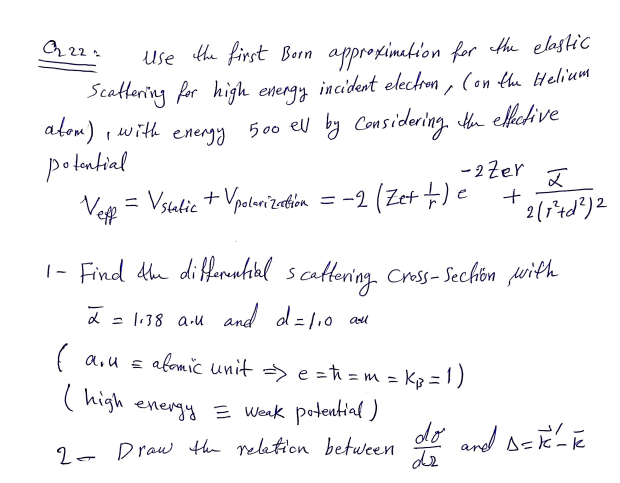 Q 22 : Use the first Born approximation for the elastic
Scattering for high energy incident electron, (on the Helium
atom), with energy 500 eV by Considering the effective
potential
V_eff = V_static + V_polarization = -2 (Ze + 1/r) e^(-2Ze r) + ᾱ / 2(r²+d²)²
1- Find the differential scattering Cross-Section, with
ᾱ = 1.38 a.u and d = 1.0 au
( a.u ≡ atomic unit ⇒ e = ħ = m = K_B = 1 )
( high energy ≡ weak potential )
2- Draw the relation between dσ/dΩ and Δ = k⃗' - k̄